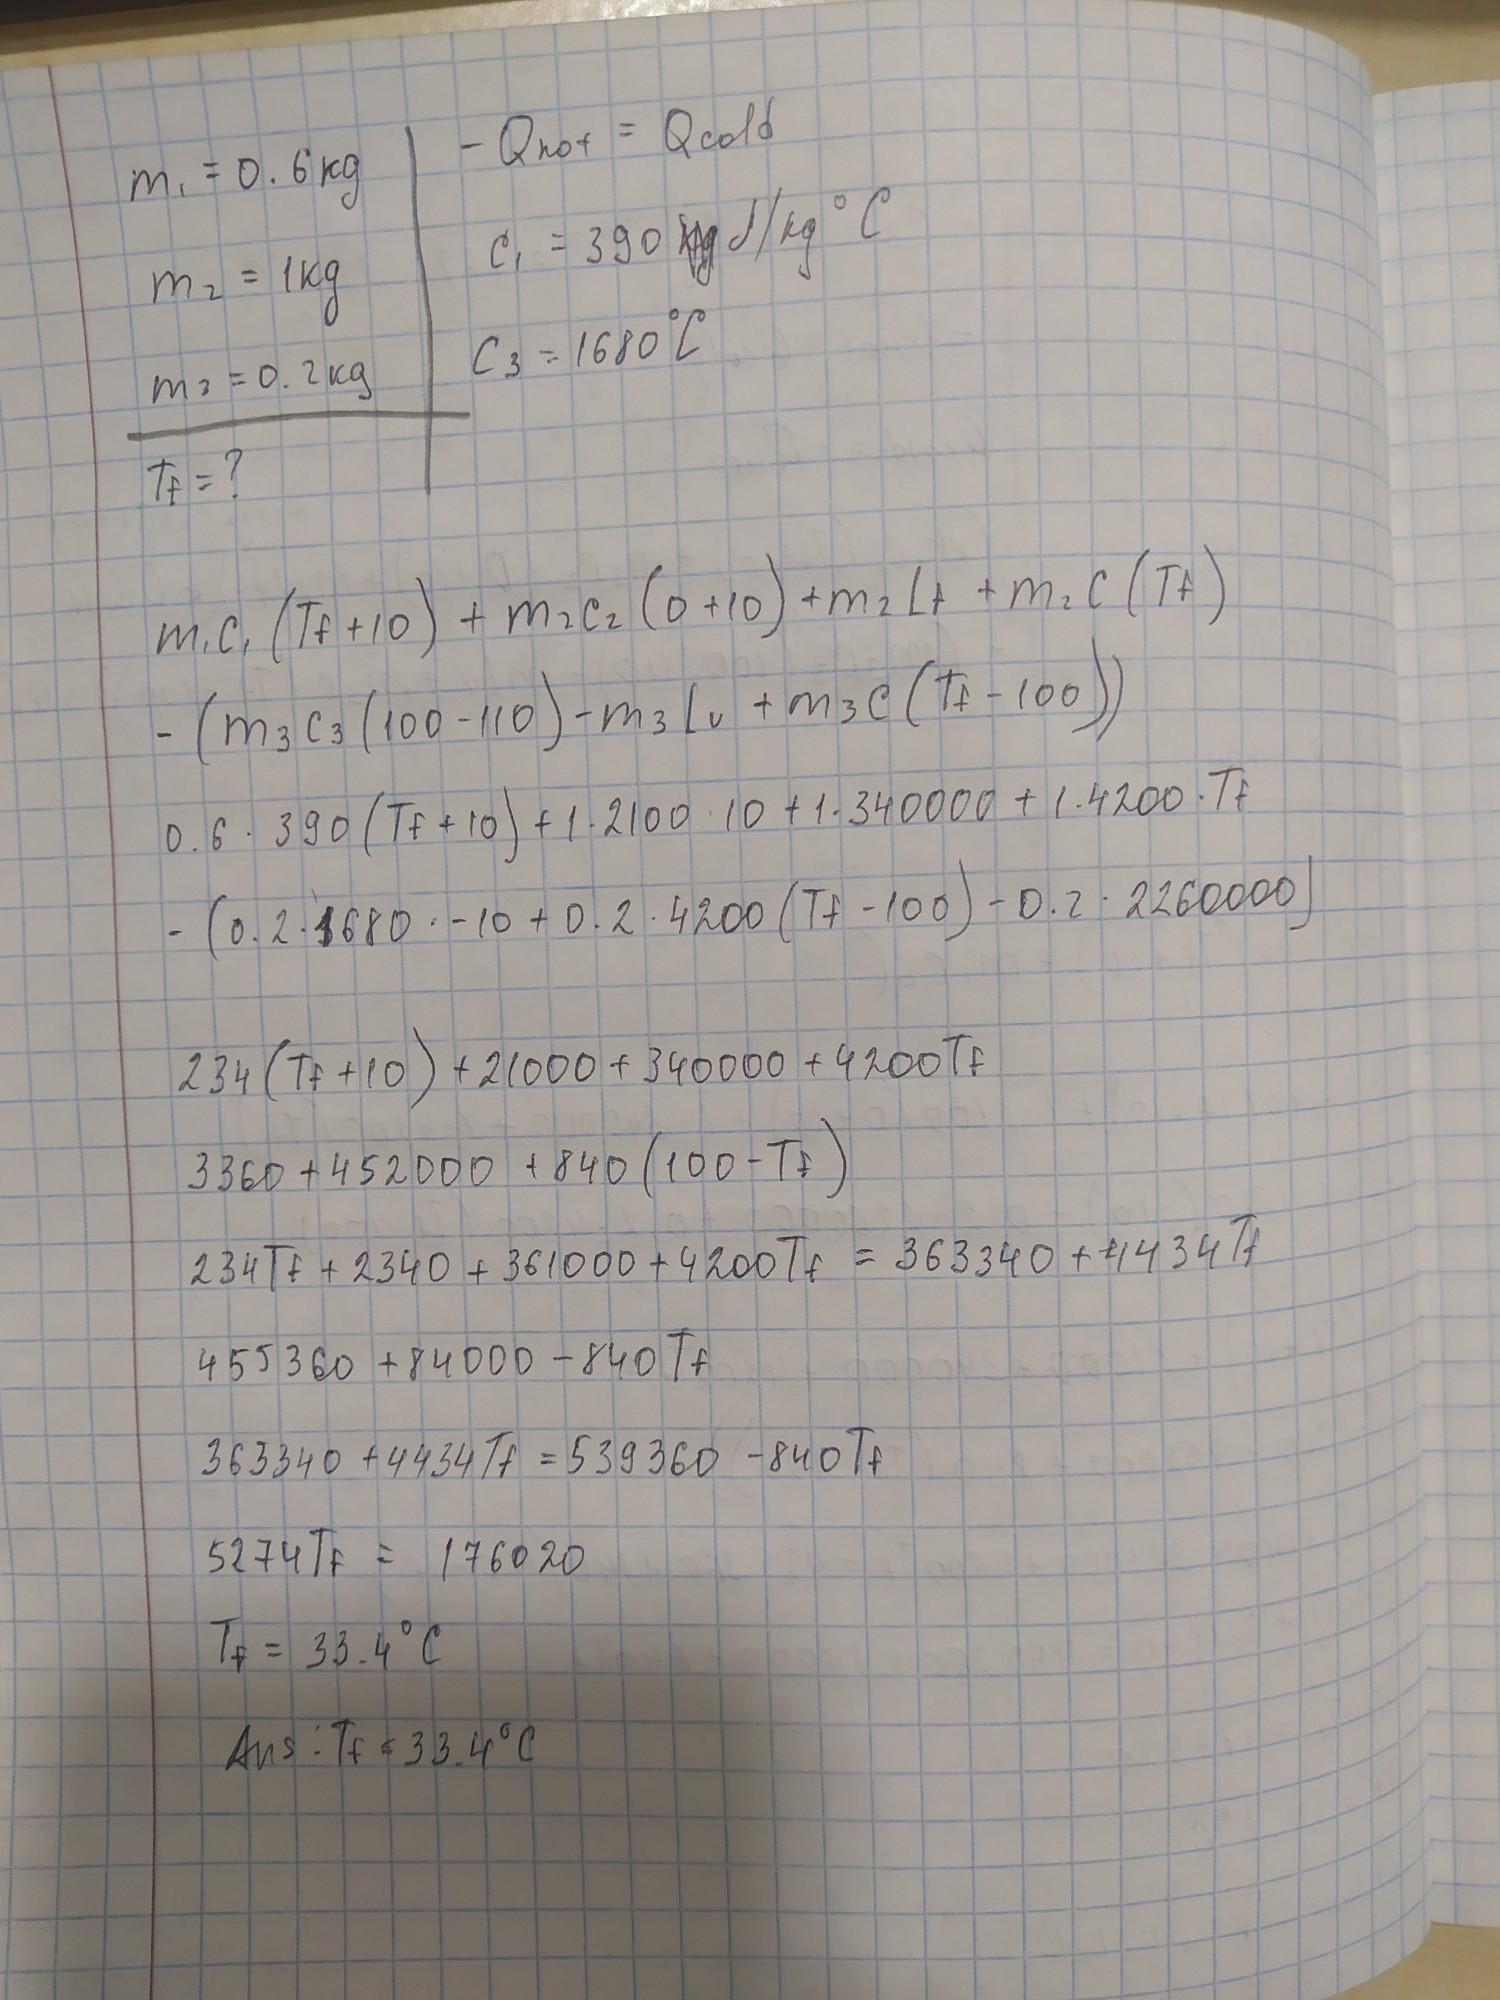 m₁ = 0.6 kg
m₂ = 1 kg
m₃ = 0.2 kg
Tf = ?
- Qhot = Qcold
c₁ = 390 J/kg°C
C₃ = 1680°C
m₁c₁(Tf + 10) + m₂c₂(0 + 10) + m₂Lf + m₂C(Tf)
- (m₃c₃(100 - 110) - m₃Lv + m₃c(Tf - 100))
0.6 · 390(Tf + 10) + 1 · 2100 · 10 + 1 · 340000 + 1 · 4200 · Tf
- (0.2 · 1680 · -10 + 0.2 · 4200(Tf - 100) - 0.2 · 2260000)
234(Tf + 10) + 21000 + 340000 + 4200Tf
3360 + 452000 + 840(100 - Tf)
234Tf + 2340 + 361000 + 4200Tf = 363340 + 4434Tf
455360 + 84000 - 840Tf
363340 + 4434Tf = 539360 - 840Tf
5274Tf = 176020
Tf = 33.4°C
Ans: Tf = 33.4°C